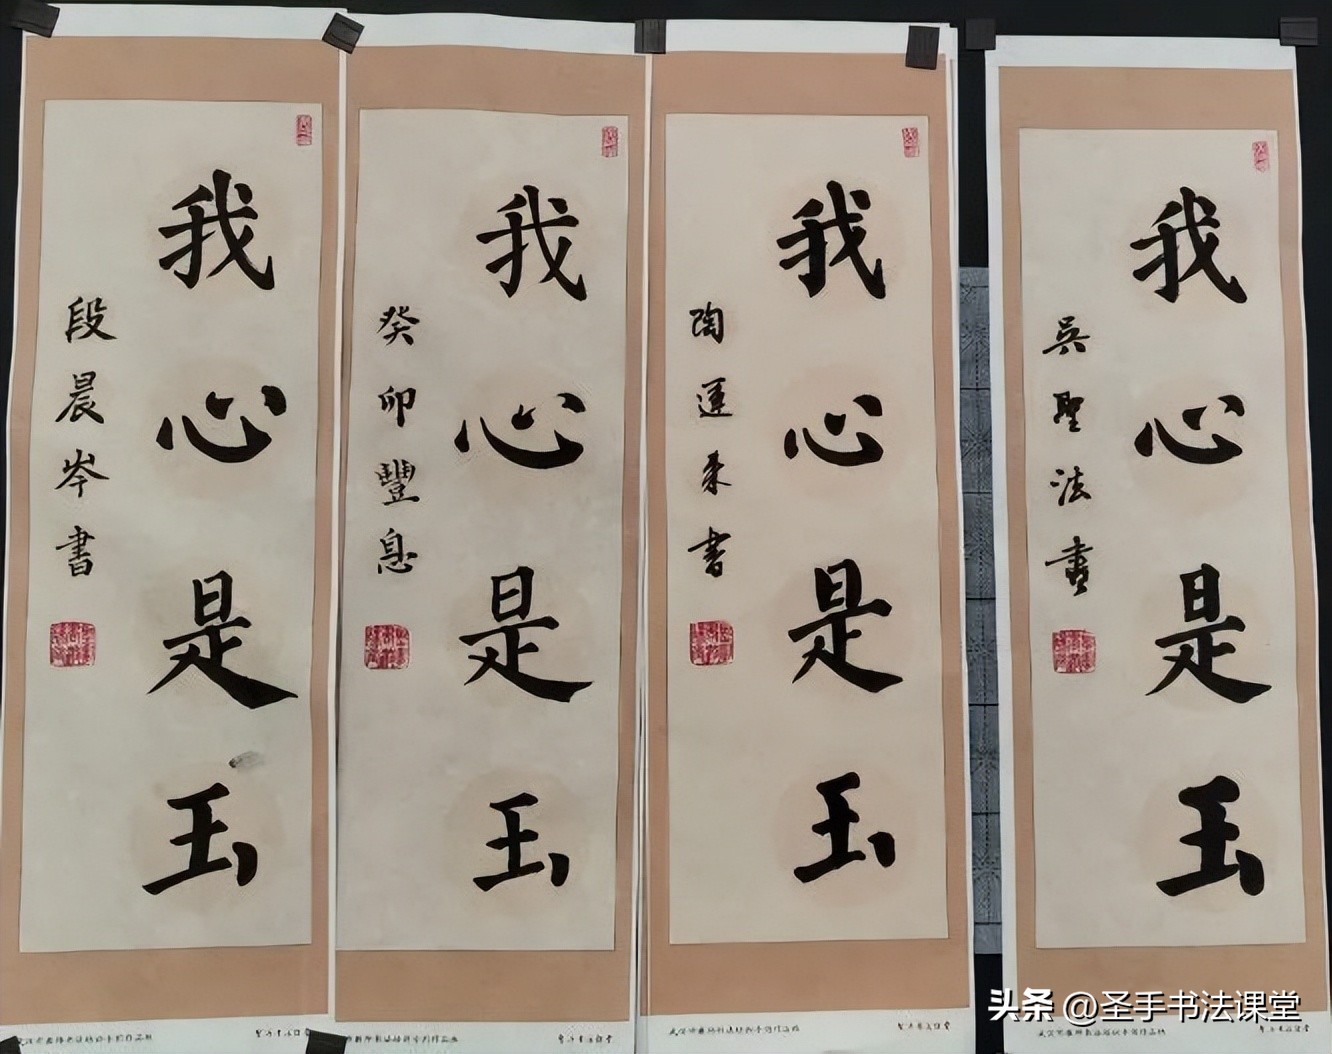 我心是玉
段晨岑書
我心是玉
癸卯豐息
我心是玉
陶運來書
我心是玉
吳聖法書
头条 @圣手书法课堂